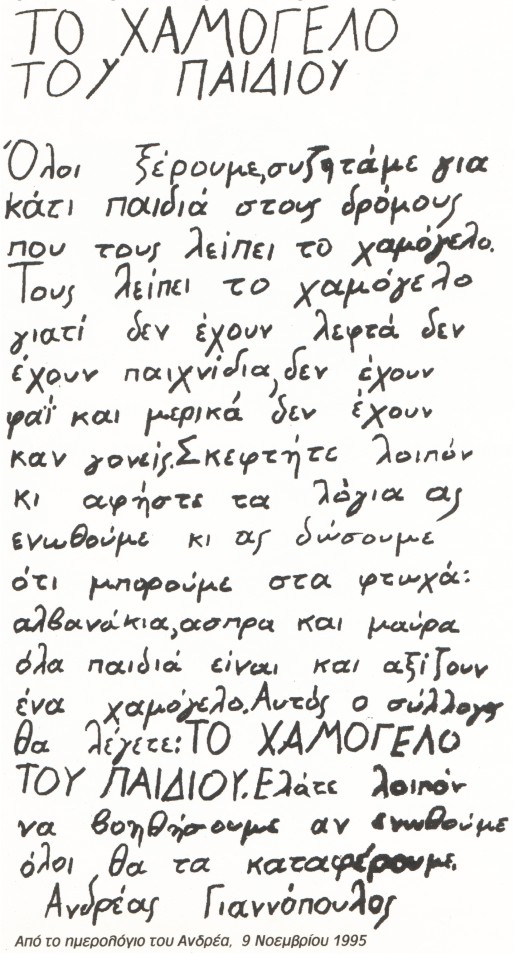 ΤΟ ΧΑΜΟΓΕΛΟ
ΤΟΥ ΠΑΙΔΙΟΥ
Όλοι ξέρουμε,συζητάμε για
κάτι παιδιά στους δρόμους
που τους λείπει το χαμόγελο.
Τους λείπει το χαμόγελο
γιατί δεν έχουν λεφτά δεν
έχουν παιχνίδια,δεν έχουν
φαΐ και μερικά δεν έχουν
καν γονείς.Σκεφτήτε λοιπόν
κι αφήστε τα λόγια ας
ενωθούμε κι ας δώσουμε
ότι μπορούμε στα φτωχά:
αλβανάκια,ασπρα και μαύρα
όλα παιδιά είναι και αξίζουν
ένα χαμόγελο.Αυτός ο σύλλογος
θα λέγετε:ΤΟ ΧΑΜΟΓΕΛΟ
ΤΟΥ ΠΑΙΔΙΟΥ.Ελάτε λοιπόν
να βοηθήσουμε αν ενωθούμε
όλοι,θα τα καταφέρουμε.
Ανδρέας Γιαννόπουλος
Από το ημερολόγιο του Ανδρέα, 9 Νοεμβρίου 1995